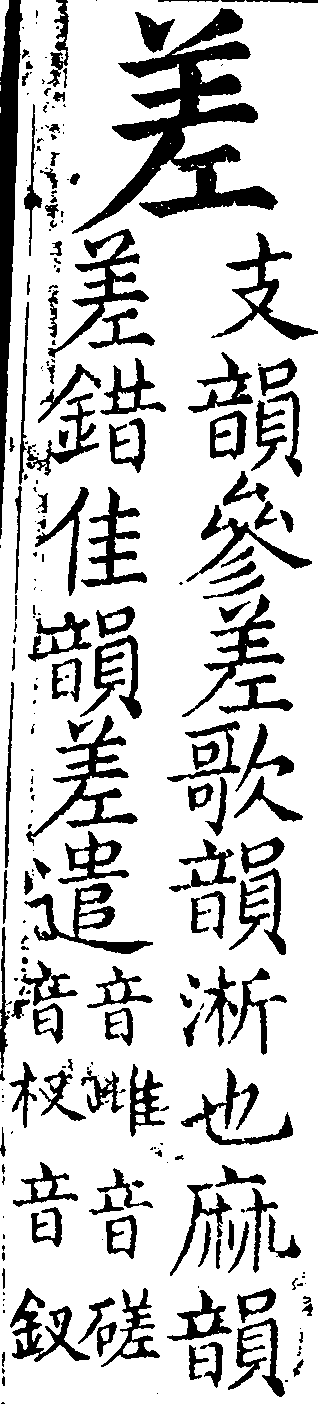 差
支韻參差歌韻淅也麻韻
差錯佳韻差遣
音雌音磋
音杈音釵